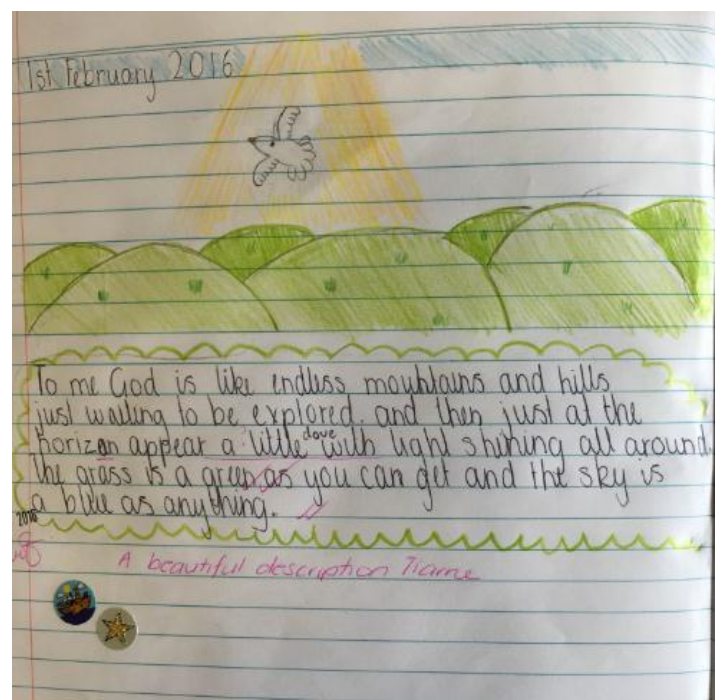 1st February 2016
To me God is like endless mountains and hills
just waiting to be explored. and then just at the
horizon appear a little dove with light shining all around.
The grass is a green as you can get and the sky is
a blue as anything.
2016
A beautiful description